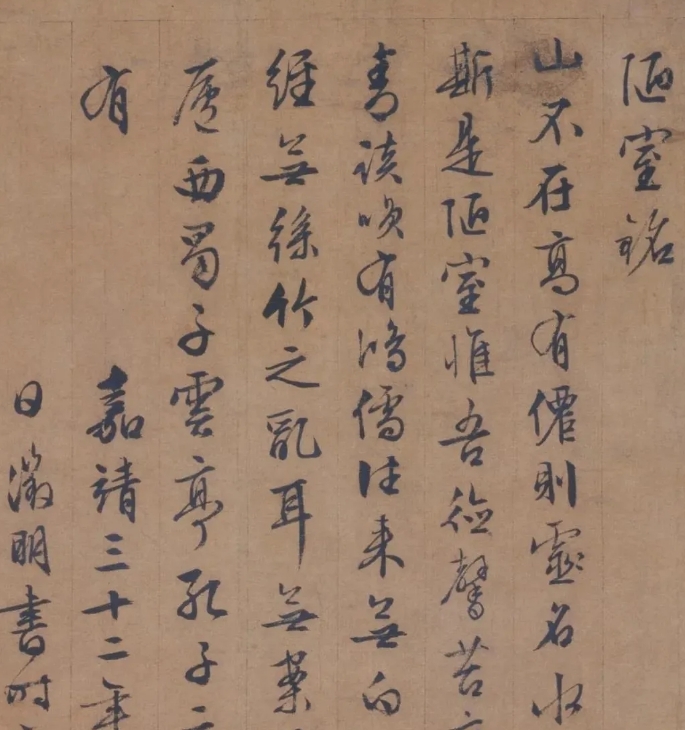 陋室銘
山不在髙有僊則靈名水
斯是陋室惟吾德馨苔
青談咲有鴻儒往来無白
經無絲竹之亂耳無案
廬西蜀子雲亭孔子
有 嘉靖三十二年
日澂明書時